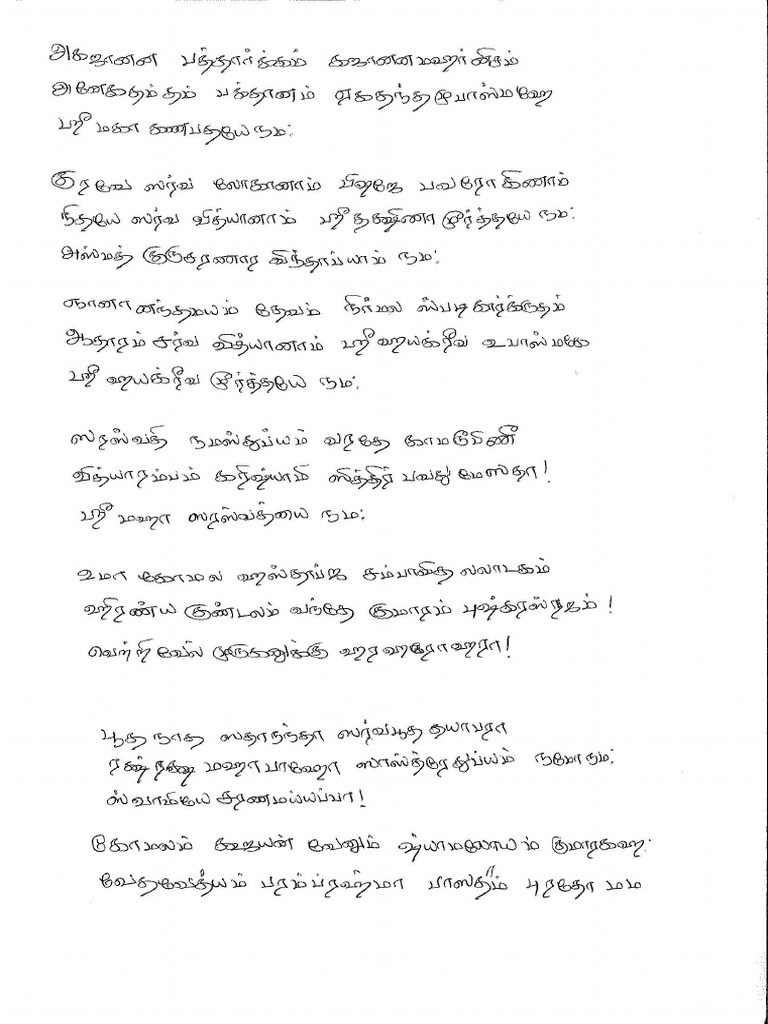 அகஜானன பத்தார்க்கம் கஜானனமஹர்னிசம்
அனேகதம்தம் பக்தானம் ஏகதந்தமுபாஸ்மஹே
ஸ்ரீ மகா கணபதயே நம:
குரவே ஸர்வ லோகானாம் பிஷஜே பவரோகிணாம்
நிதயே ஸர்வ வித்யானாம் ஸ்ரீ தக்ஷிணா மூர்த்தயே நம:
அஸ்மத் குருசரணார விந்தாப்யாம் நம:
ஞானா னந்தமயம் தேவம் நிர்மல ஸ்படிகார்க்ருதம்
ஆதாரம் சர்வ வித்யானாம் ஸ்ரீ ஹயக்ரீவ உபாஸ்மகே
ஸ்ரீ ஹயக்ரீவ மூர்த்தயே நம:
ஸரஸ்வதி நமஸ்துப்யம் வரதே காமரூபிணீ
வித்யாரம்பம் கரிஷ்யாமி ஸித்திர் பவது மேஸதா!
ஸ்ரீ மஹா ஸரஸ்வத்யை நம:
உமா கோமல ஹஸ்தாப்ஜ சம்பாவித லலாடகம்
ஹிரண்ய குண்டலம் வந்தே குமாரம் புஷ்கரஸ்ரஜம் !
வெற்றிவேல் முருகனுக்கு ஹரஹரோஹரா!
பூத நாத ஸதாநந்தா ஸர்வபூத தயாபரா
ரக்ஷ ரக்ஷ மஹா பாஹோ ஸாஸ்த்ரேதுப்யம் நமோநம:
ஸ்வாமியே சரணமய்யப்பா!
கோமலம் கூஜயன் வேனும் ஷ்யாமலோயம் குமாரகஹ:
வேதவேத்யம் பரம்ப்ரஹ்மா பாஸதாம் புரதோ மம